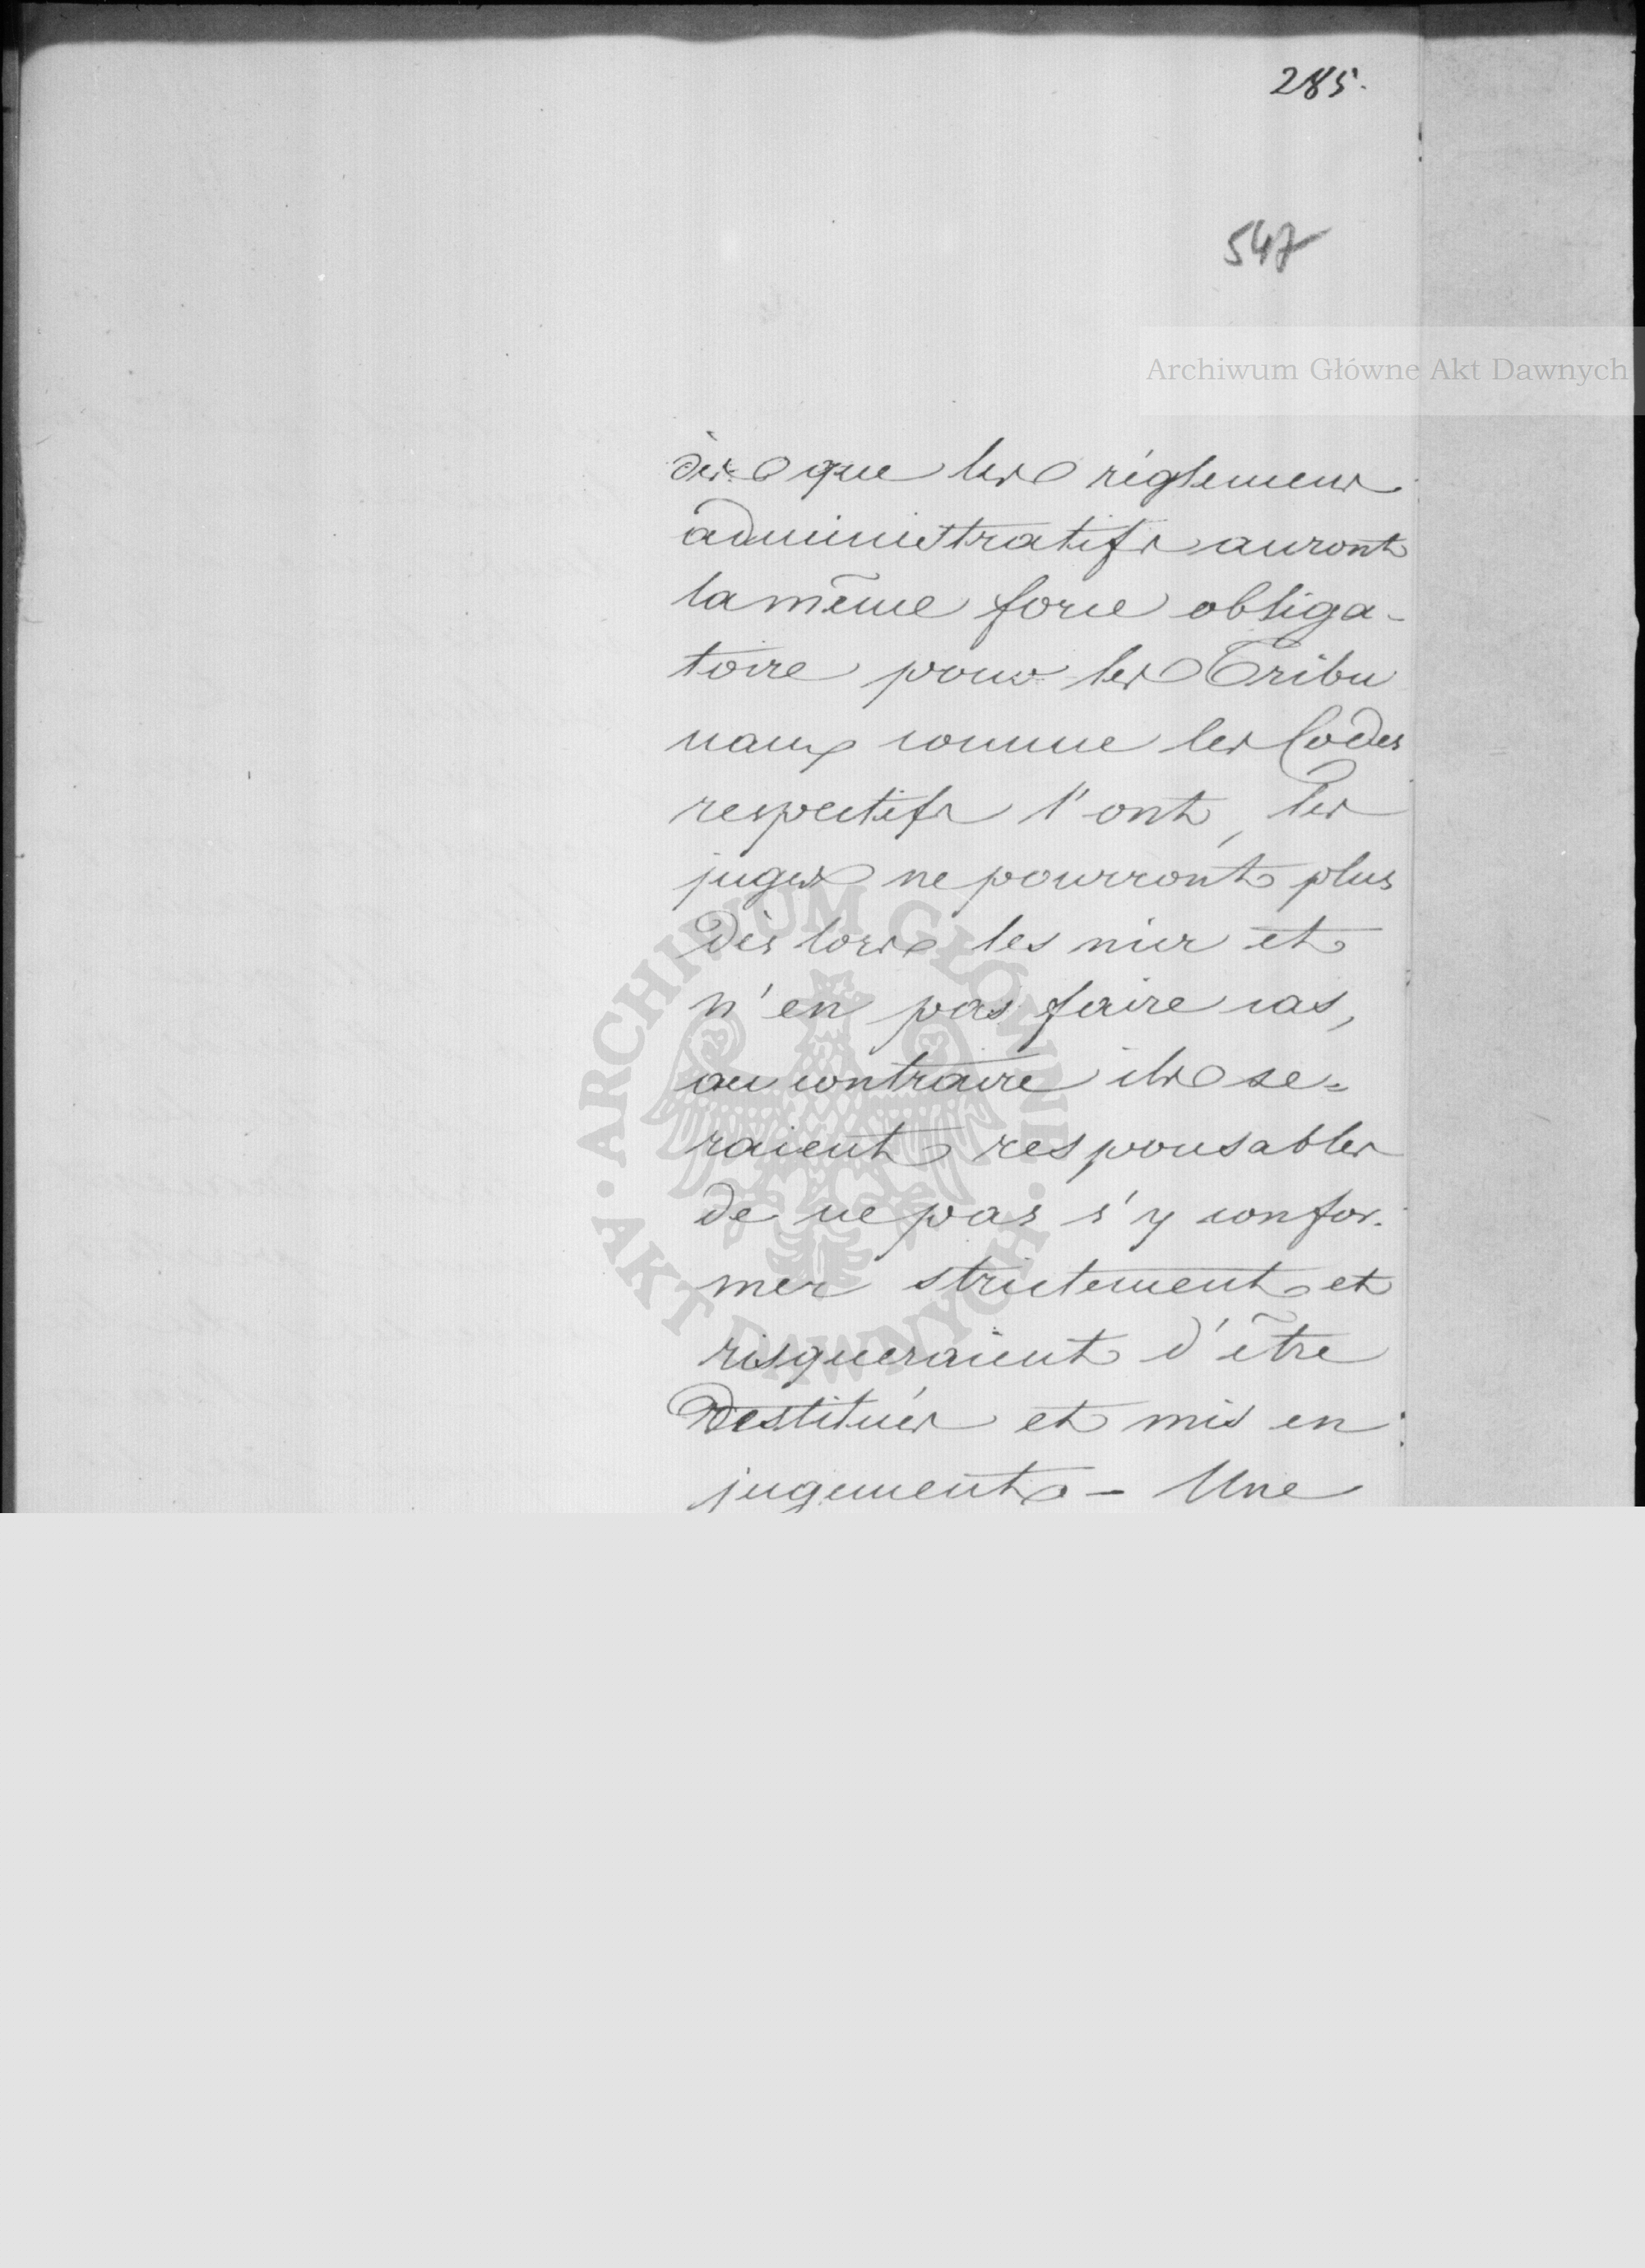 285.
547
Archiwum Główne Akt Dawnych
dès que les réglemens
administratifs auront
la même force obliga-
toire pour les Tribu
naux comme les Codes
respectifs l'ont, les
juges ne pourront plus
dès lors les nier et
n'en pas faire cas,
au contraire ils se=
raient responsables
de ne pas s'y confor-
mer strictement et
risqueraient d'être
destitués et mis en
jugement. – Une
ARCHIWUM GŁÓWNE
AKT DAWNYCH